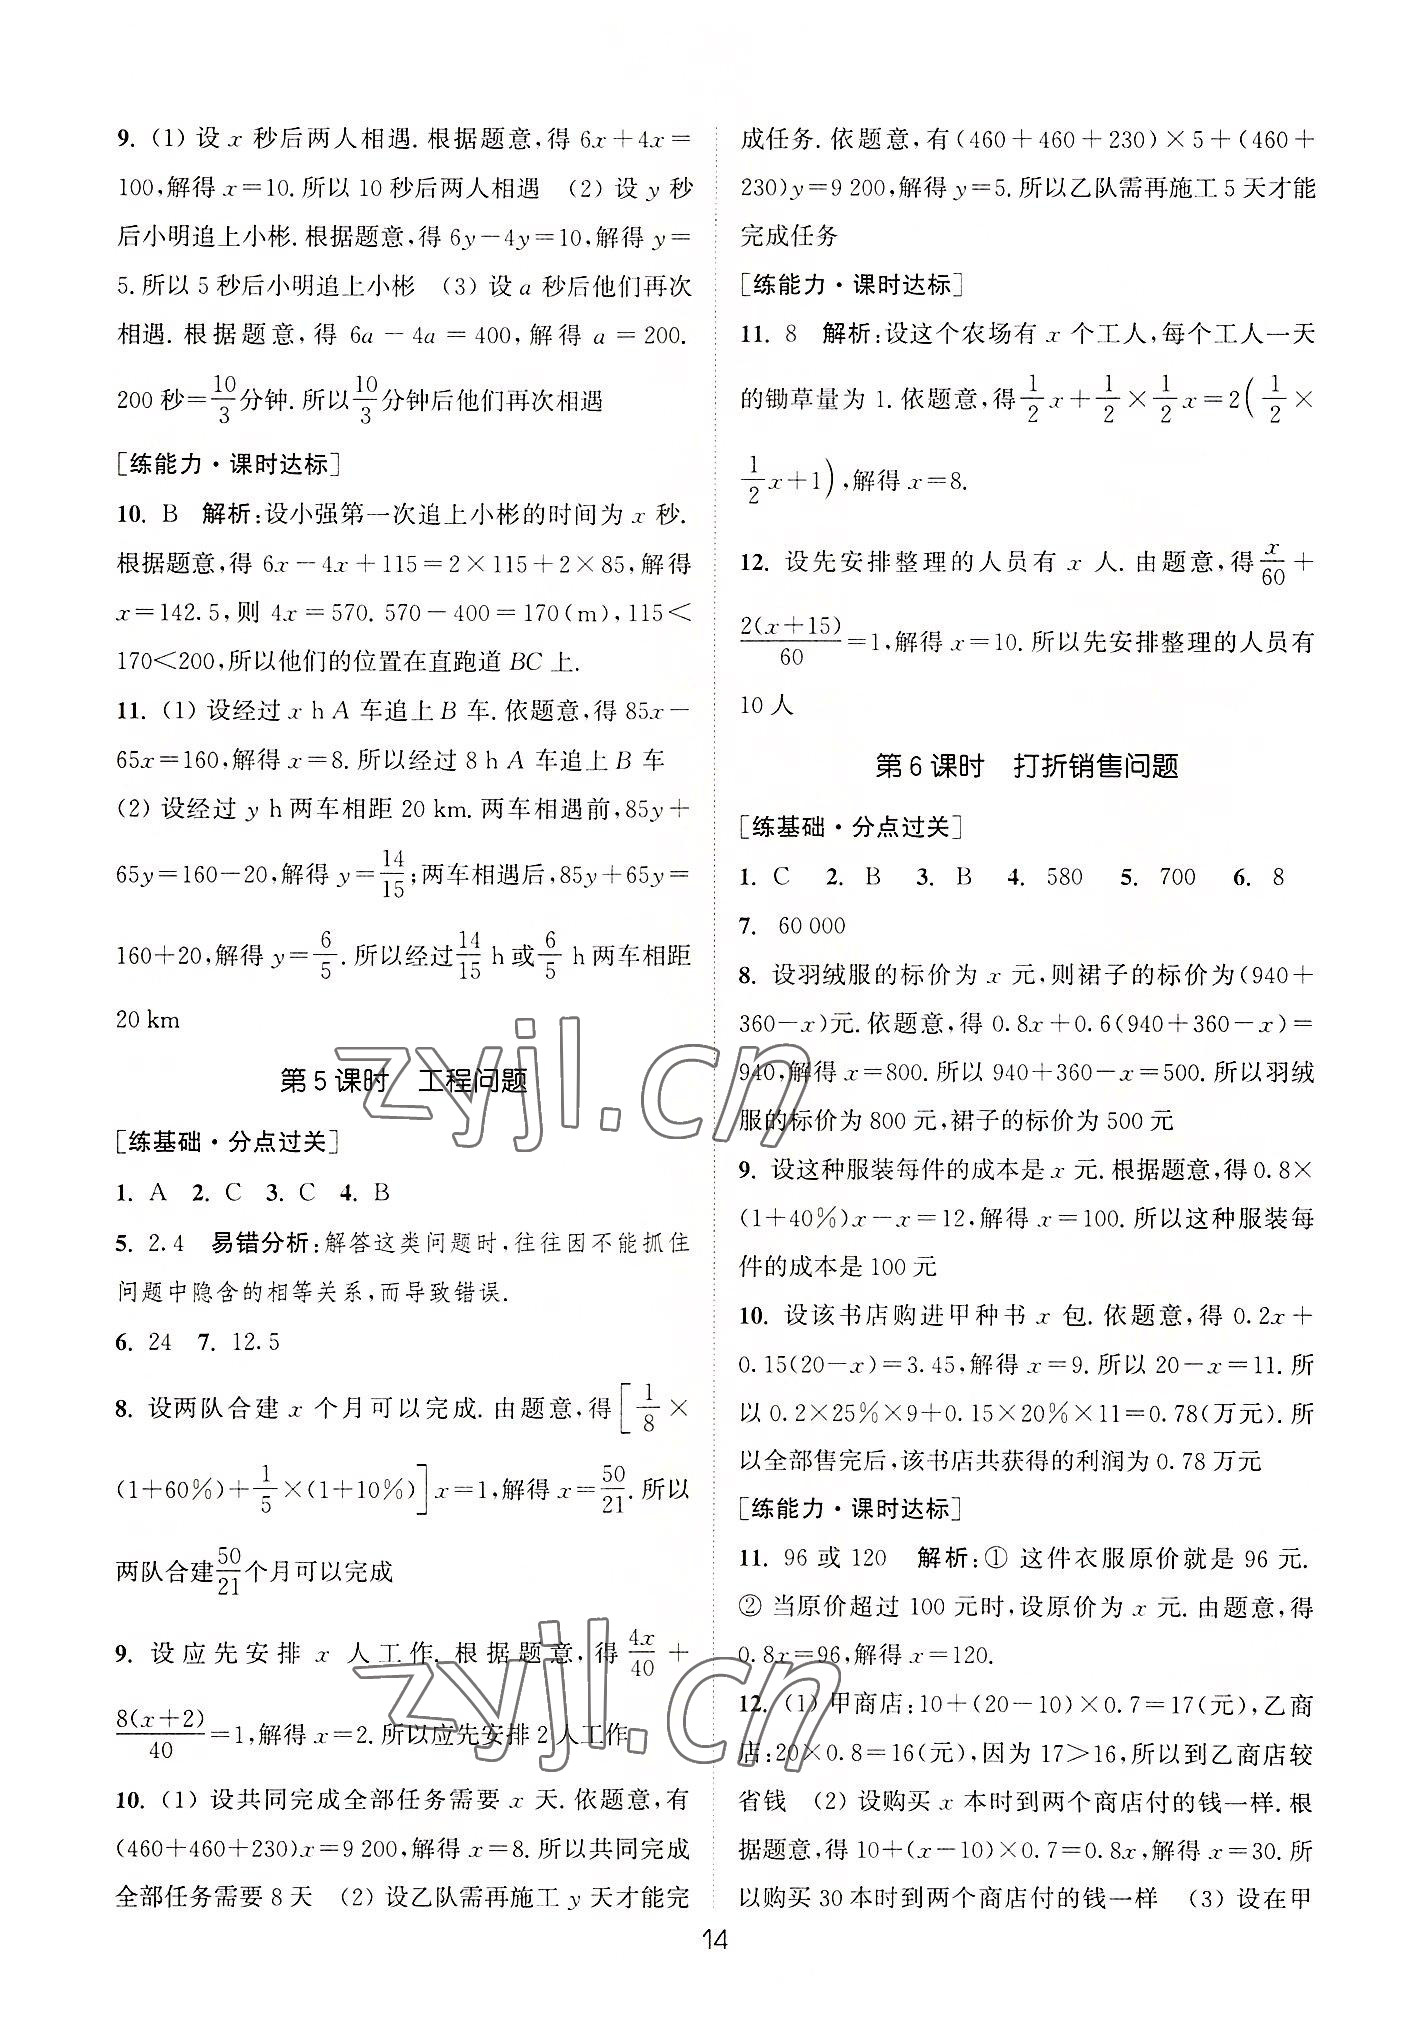 9. (1) 设 x 秒后两人相遇. 根据题意,得 6x+4x=
100,解得 x=10. 所以 10 秒后两人相遇 (2) 设 y 秒
后小明追上小彬. 根据题意,得 6y-4y=10,解得 y=
5. 所以 5 秒后小明追上小彬 (3) 设 a 秒后他们再次
相遇. 根据题意,得 6a-4a=400,解得 a=200.
200 秒=10/3分钟. 所以10/3分钟后他们再次相遇
[练能力·课时达标]
10. B 解析:设小强第一次追上小彬的时间为 x 秒.
根据题意,得 6x-4x+115=2×115+2×85,解得
x=142.5,则 4x=570. 570-400=170(m),115<
170<200,所以他们的位置在直跑道 BC 上.
11. (1) 设经过 x h A 车追上 B 车. 依题意,得 85x-
65x=160,解得 x=8. 所以经过 8 h A 车追上 B 车
(2) 设经过 y h 两车相距 20 km. 两车相遇前,85y+
65y=160-20,解得 y=14/15;两车相遇后,85y+65y=
160+20,解得 y=6/5. 所以经过14/15 h 或6/5 h 两车相距
20 km
第 5 课时 工程问题
[练基础·分点过关]
1. A 2. C 3. C 4. B
5. 2.4 易错分析:解答这类问题时,往往因不能抓住
问题中隐含的相等关系,而导致错误.
6. 24 7. 12.5
8. 设两队合建 x 个月可以完成. 由题意,得[1/8×
(1+60%)+1/5×(1+10%)]x=1,解得 x=50/21. 所以
两队合建50/21个月可以完成
9. 设应先安排 x 人工作. 根据题意,得4x/40+
8(x+2)/40=1,解得 x=2. 所以应先安排 2 人工作
10. (1) 设共同完成全部任务需要 x 天. 依题意,有
(460+460+230)x=9 200,解得 x=8. 所以共同完成
全部任务需要 8 天 (2) 设乙队需再施工 y 天才能完
成任务. 依题意,有(460+460+230)×5+(460+
230)y=9 200,解得 y=5. 所以乙队需再施工 5 天才能
完成任务
[练能力·课时达标]
11. 8 解析:设这个农场有 x 个工人,每个工人一天
的锄草量为 1. 依题意,得1/2x+1/2×1/2x=2(1/2×
1/2x+1),解得 x=8.
12. 设先安排整理的人员有 x 人. 由题意,得x/60+
2(x+15)/60=1,解得 x=10. 所以先安排整理的人员有
10 人
第 6 课时 打折销售问题
[练基础·分点过关]
1. C 2. B 3. B 4. 580 5. 700 6. 8
7. 60 000
8. 设羽绒服的标价为 x 元,则裙子的标价为(940+
360-x)元. 依题意,得 0.8x+0.6(940+360-x)=
940,解得 x=800. 所以 940+360-x=500. 所以羽绒
服的标价为 800 元,裙子的标价为 500 元
9. 设这种服装每件的成本是 x 元. 根据题意,得 0.8×
(1+40%)x-x=12,解得 x=100. 所以这种服装每
件的成本是 100 元
10. 设该书店购进甲种书 x 包. 依题意,得 0.2x+
0.15(20-x)=3.45,解得 x=9. 所以 20-x=11. 所
以 0.2×25%×9+0.15×20%×11=0.78(万元). 所
以全部售完后,该书店共获得的利润为 0.78 万元
[练能力·课时达标]
11. 96 或 120 解析:① 这件衣服原价就是 96 元.
② 当原价超过 100 元时,设原价为 x 元. 由题意,得
0.8x=96,解得 x=120.
12. (1) 甲商店:10+(20-10)×0.7=17(元),乙商
店:20×0.8=16(元),因为 17>16,所以到乙商店较
省钱 (2) 设购买 x 本时到两个商店付的钱一样. 根
据题意,得 10+(x-10)×0.7=0.8x,解得 x=30. 所
以购买 30 本时到两个商店付的钱一样 (3) 设在甲
14
zyjl.cn
zyjl.cn